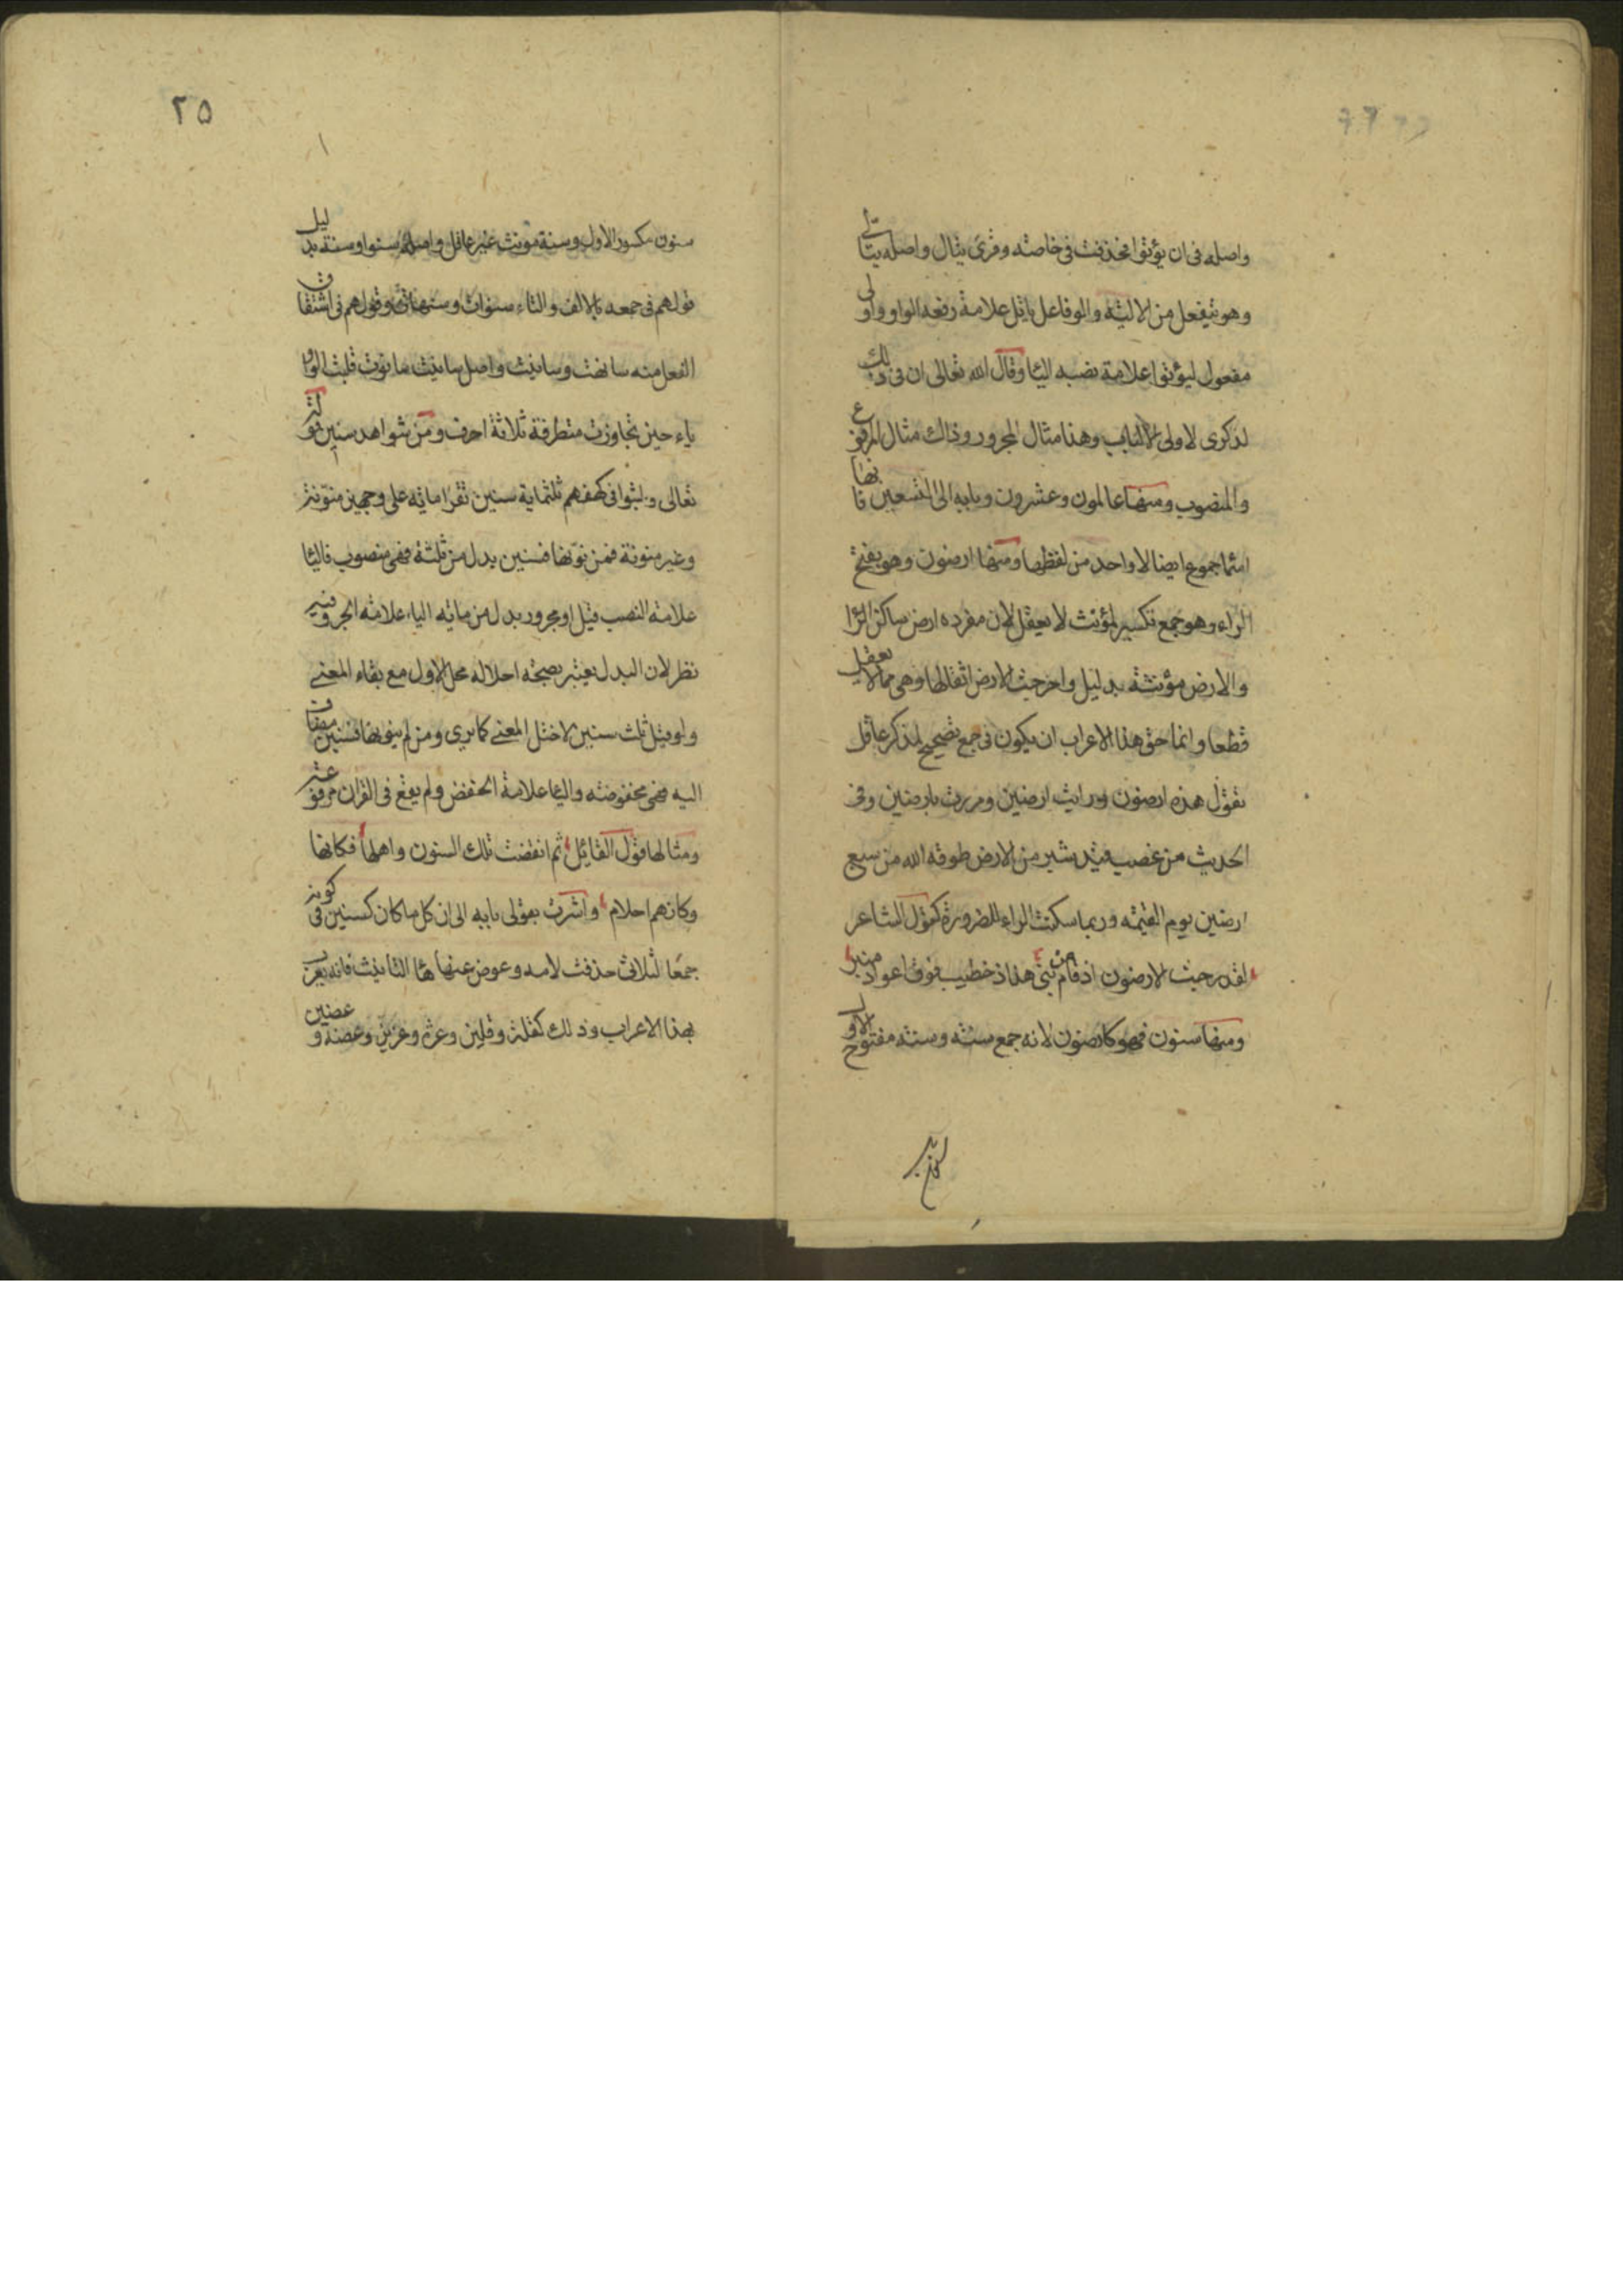 واصله فى ان يؤتوا فحذفت فى خاصته وقرئ يتال واصله يتالى
وهو يفعل من الالية والو فاعل ياتل علامة رفعه الواو واولى
مفعول ليؤتوا علامة نصبه اليا وقال الله تعالى ان فى ذلك
لذكرى لاولى الالباب وهذا مثال المجرور وذاك مثال المرفوع
والمنصوب ومنها عالمون وعشرون وبابه الى التسعين فانها
اسما جموع ايضا لا واحد من لفظها ومنها ارضون وهو بفتح
الراء وهو جمع تكسير لمؤنث لا يعقل لان مفرده ارض ساكن الرا
والارض مؤنثة بدليل واخرجت الارض اثقالها وهى مما لا يعقل
قطعا وانما حق هذا الاعراب ان يكون فى جمع تصحيح لمذكر عاقل
تقول هذه ارضون ورايت ارضين ومررت بارضين وفى
الحديث من غصب قيد شبر من الارض طوقه الله من سبع
ارضين يوم القيمة وربما سكنت الراء للضرورة كقول الشاعر
لقد رحبت الارضون اذ قام من بنى هذاذ خطيب فوق اعواد منبر
ومنها سنون فهو كارضون لانه جمع سنة وسنة مفتوح الاول
٢٥
سنون مكسور الاول وسنة مونث غير عاقل واصله سنو او سنة بدليل
قولهم فى جمعه بالالف والتاء سنوات وسنهات وقولهم فى اشتقاق
الفعل منه سانهت وسانيت واصل سانيت سانوت قلبت الواو
ياء حين تجاوزت متطرفة ثلاثة احرف ومن شواهد سنين قوله
تعالى ولبثوا فى كهفهم ثلثماية سنين تقرا ماية على وجهين منونة
وغير منونة فمن نونها فسنين بدل من ثلثة فهى منصوب فاليا
علامة النصب قيل او مجرور بدل من ماية الياء علامة الجر وفيه
نظر لان البدل يعتبر بصحة احلاله محل الاول مع بقاء المعنى
ولو قيل ثلث سنين لاختل المعنى كما برى ومن لم ينونها فسنين مضاف
اليه فهى مخفوضة واليا علامة الخفض ولم يقع فى القران مرفوعة
ومثالها قول القايل ثم انقضت تلك السنون واهلها فكانها
وكانهم احلام واشرت بقولى بابه الى ان كل ما كان كسنين فى كونه
جمعا لثلاثى حذفت لامه وعوض عنها ها التانيث فانه يعرب
بهذا الاعراب وذلك كقلة وقلين وعزة وعزين وعضة وعضين